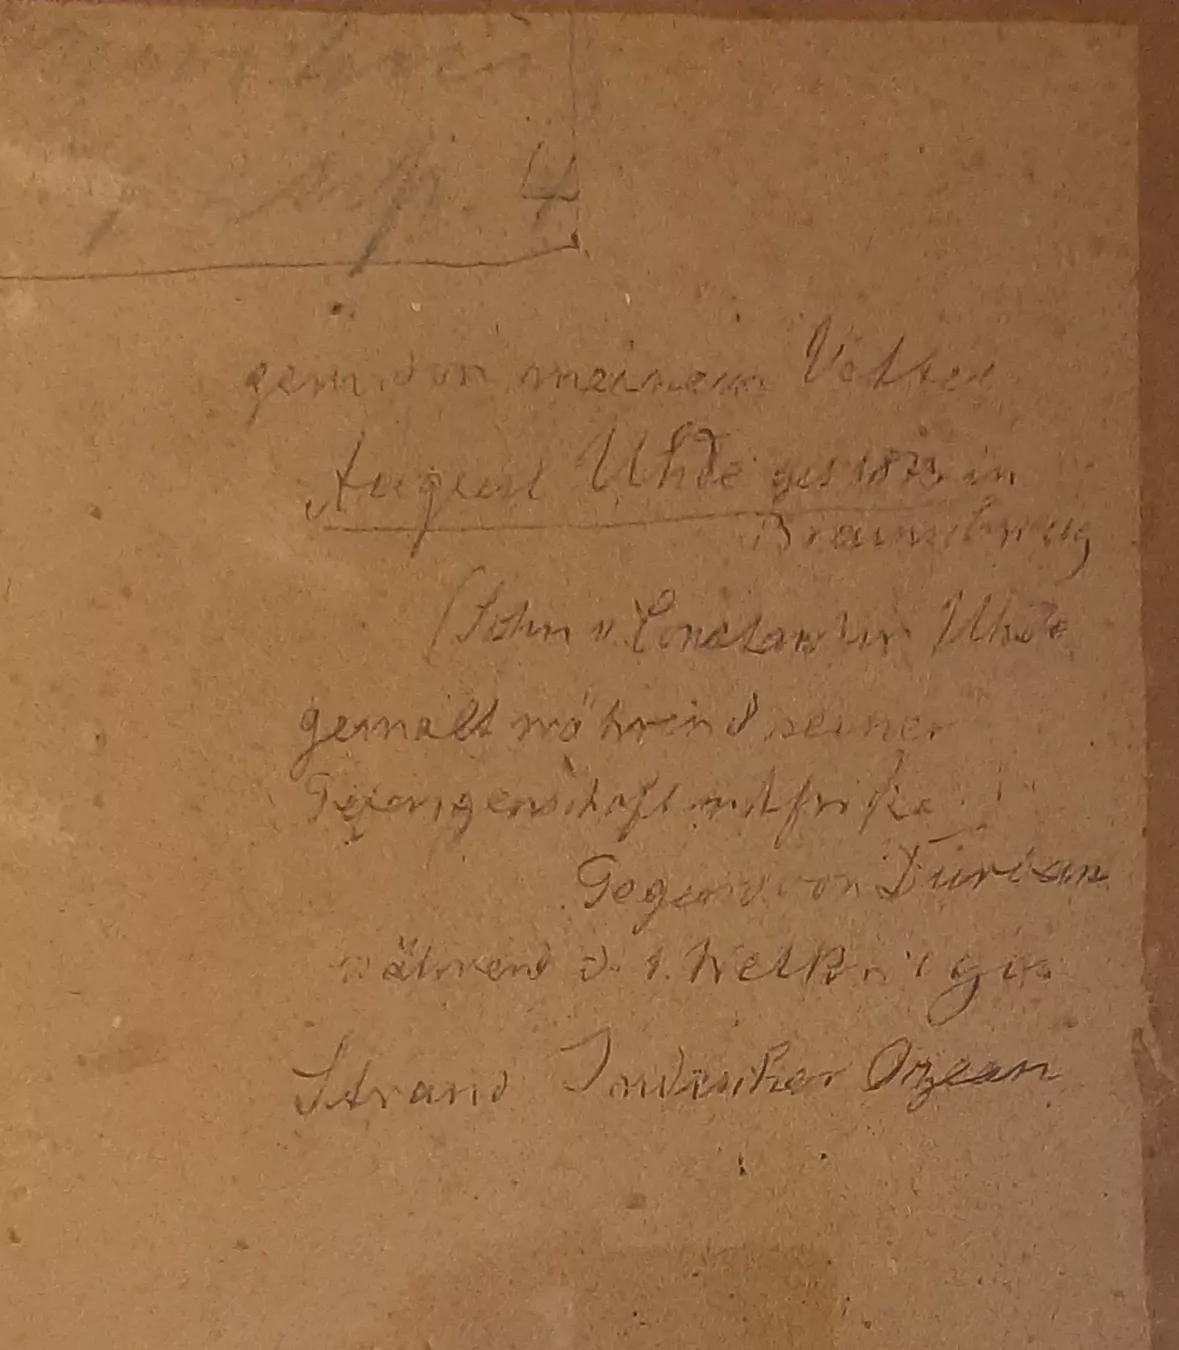 4
gem. von meinem Vetter
August Uhde geb 1873 in
Braunschweig
(Sohn v. Constantin Uhde
gemalt während seiner
Gefangenschaft
Gegend von Durban
während d. 1. Weltkrieges
Strand Indischer Ozean